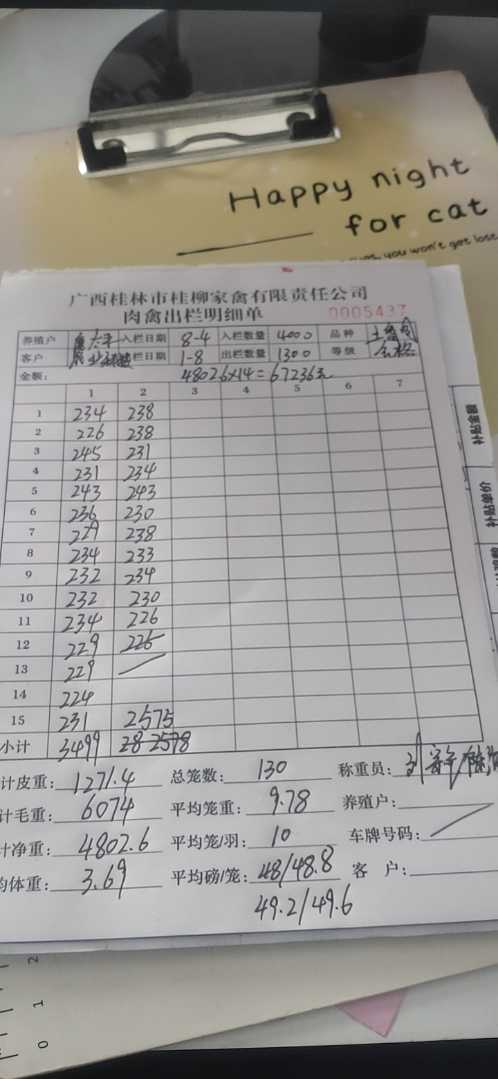 Happy night
for cat
you won't get lost
广西桂林市桂柳家禽有限责任公司
肉禽出栏明细单
0005437
养殖户 入栏日期 8-4 入栏数量 4000 品种
客户 出栏日期 1-8 出栏数量 1300 等级 合格
金额: 4802.6×14=67236元
1 2 3 4 5 6 7
1 234 238
2 226 238
3 245 231
4 231 234
5 243 243
6 236 230
7 229 238
8 234 233
9 232 234
10 232 230
11 234 226
12 229 225
13 229
14 224
15 231 2575
小计 3499 2578
计皮重: 1271.4 总笼数: 130 称重员:
计毛重: 6074 平均笼重: 9.78 养殖户:
计净重: 4802.6 平均笼/羽: 10 车牌号码:
均体重: 3.69 平均磅/笼: 48/48.8 客 户:
49.2/49.6
2
1
0